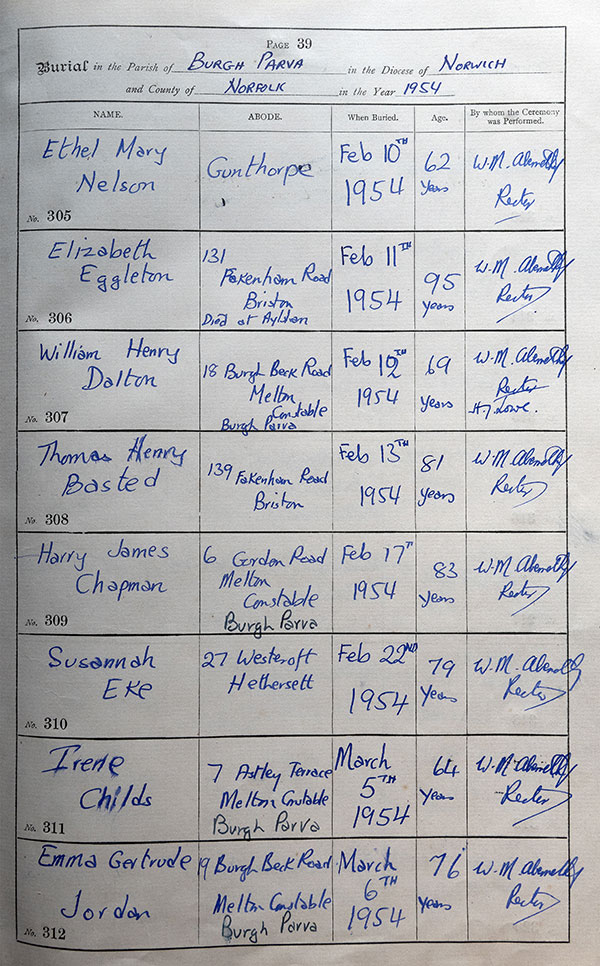 PAGE 39
Burial in the Parish of BURGH PARVA in the Diocese of NORWICH
and County of NORFOLK in the Year 1954
NAME. ABODE. When Buried. Age. By whom the Ceremony was Performed.
Ethel Mary Nelson
No. 305
Gunthorpe
Feb 10TH
1954
62
years
W.M. Abernethy
Rector
Elizabeth
Eggleton
No. 306
131
Fakenham Road
Briston
Died at
Feb 11TH
1954
95
years
W.M. Abernethy
Rector
William Henry
Dalton
No. 307
18 Burgh Beck Road
Melton
Constable
Burgh Parva
Feb 12TH
1954
69
years
W.M. Abernethy
Rector
Lowe.
Thomas Henry
Basted
No. 308
139 Fakenham Road
Briston
Feb 13TH
1954
81
years
W.M. Abernethy
Rector
Harry James
Chapman
No. 309
6 Gordon Road
Melton
Constable
Burgh Parva
Feb 17T
1954
83
years
W.M. Abernethy
Rector
Susannah
Eke
No. 310
27 Westcroft
Hethersett
Feb 22ND
1954
79
Years
W.M. Abernethy
Rector
Irene
Childs
No. 311
7 Astley Terrace
Melton Constable
Burgh Parva
March
5TH
1954
64
Years
W.M. Abernethy
Rector
Emma Gertrude
Jordan
No. 312
19 Burgh Beck Road
Melton Constable
Burgh Parva
March
6TH
1954
76
Years
W.M. Abernethy
Rector